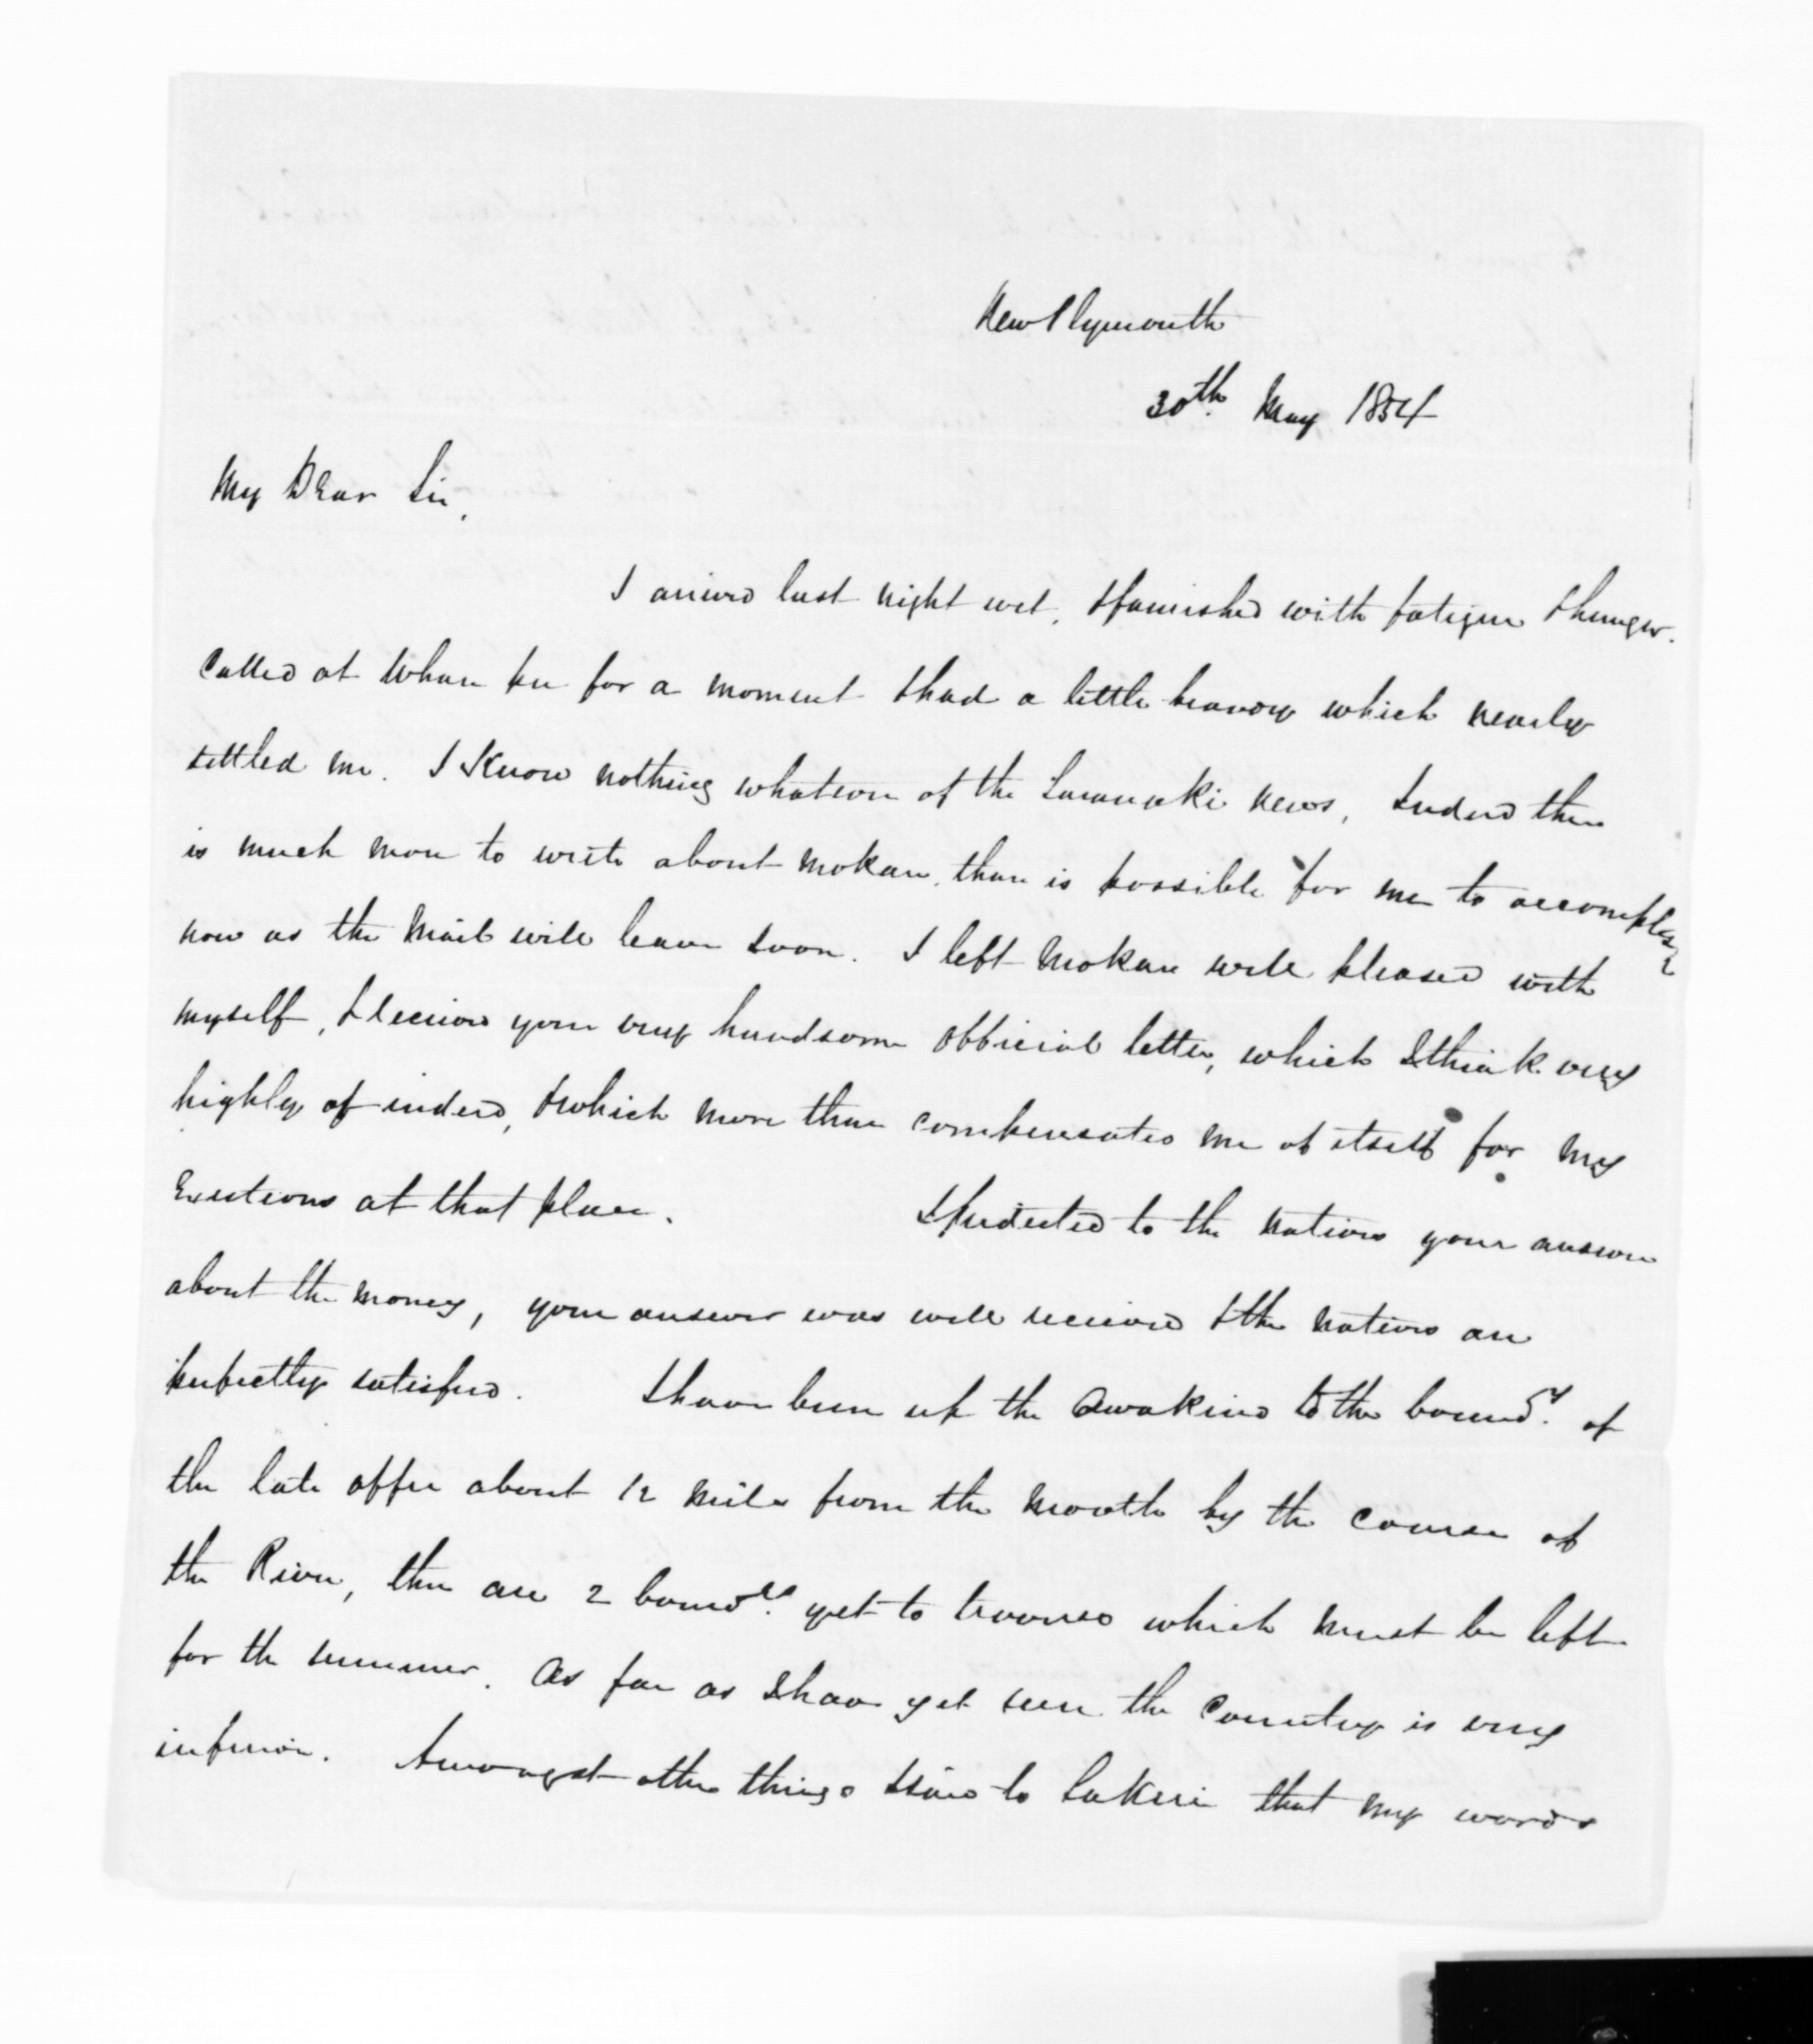 New Plymouth
30th. May 1854
My Dear Sir,
I arrived last night wet, & famished with fatigue & hunger.
Called at Whare for a moment & had a little brandy which nearly
settled me. I know nothing whatever of the Taranaki news, Indeed there
is much more to write about Mokau, than is possible for me to accomplish
now as the Mail will leave soon. I left Mokau well pleased with
myself, I received your very handsome official letter, which I think very
highly of indeed, & which more than compensates me of itself for my
Exertions at that place. I the natives your answer
about the money, your answer was well received & the natives are
perfectly satisfied. I have been up the Awakino to the boundy. of
the late offer about 12 miles from the mouth by the course of
the River, there are 2 boundes. yet to traverse which must be left
for the summer. As far as I have yet seen the Country is very
inferior. Amongst other things said to Takerei that my words